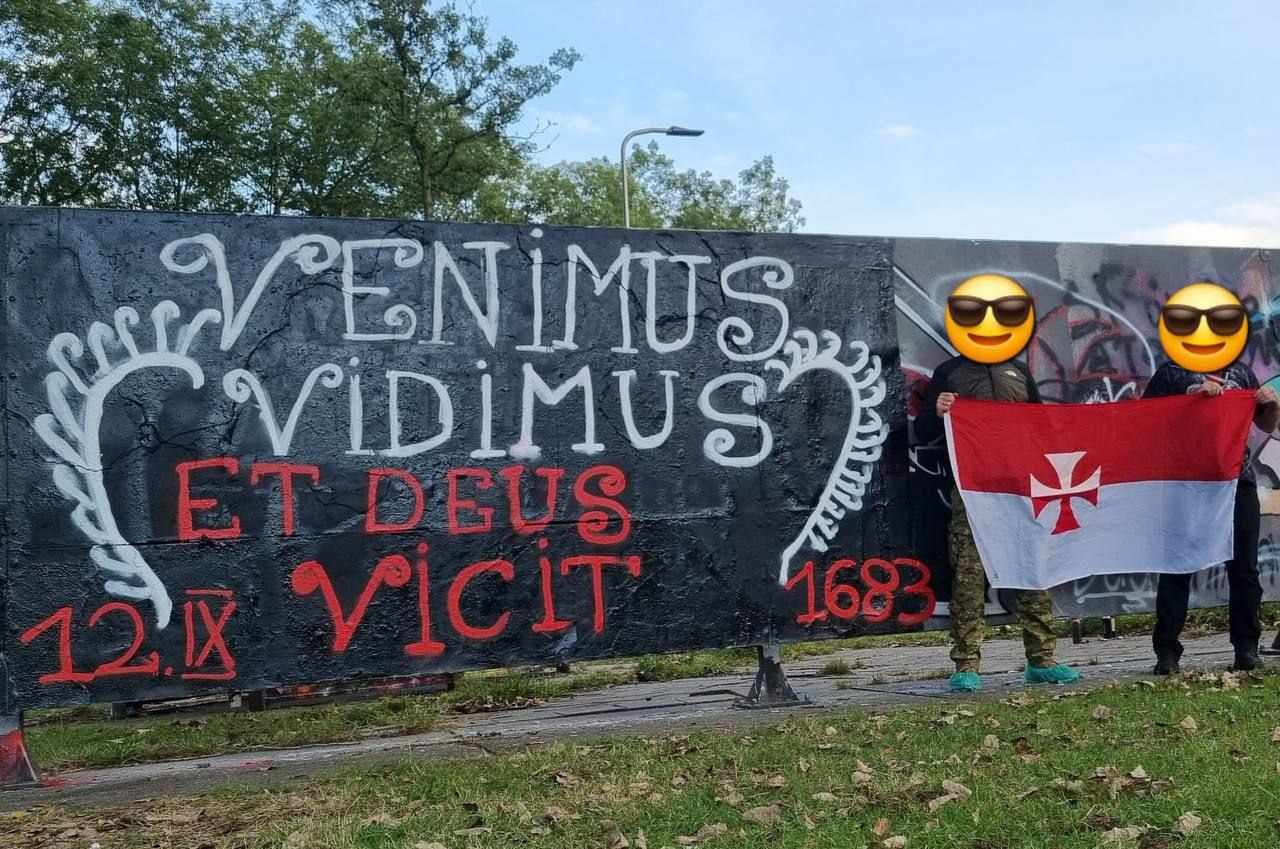 VENIMUS
VIDIMUS
ET DEUS
VICIT
12.IX
1683